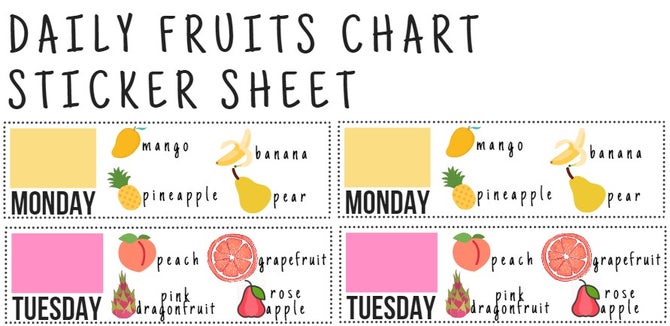 DAILY FRUITS CHART
STICKER SHEET
mango
banana
MONDAY
pineapple
pear
mango
banana
MONDAY
pineapple
pear
peach
grapefruit
TUESDAY
pink
dragonfruit
rose
apple
peach
grapefruit
TUESDAY
pink
dragonfruit
rose
apple